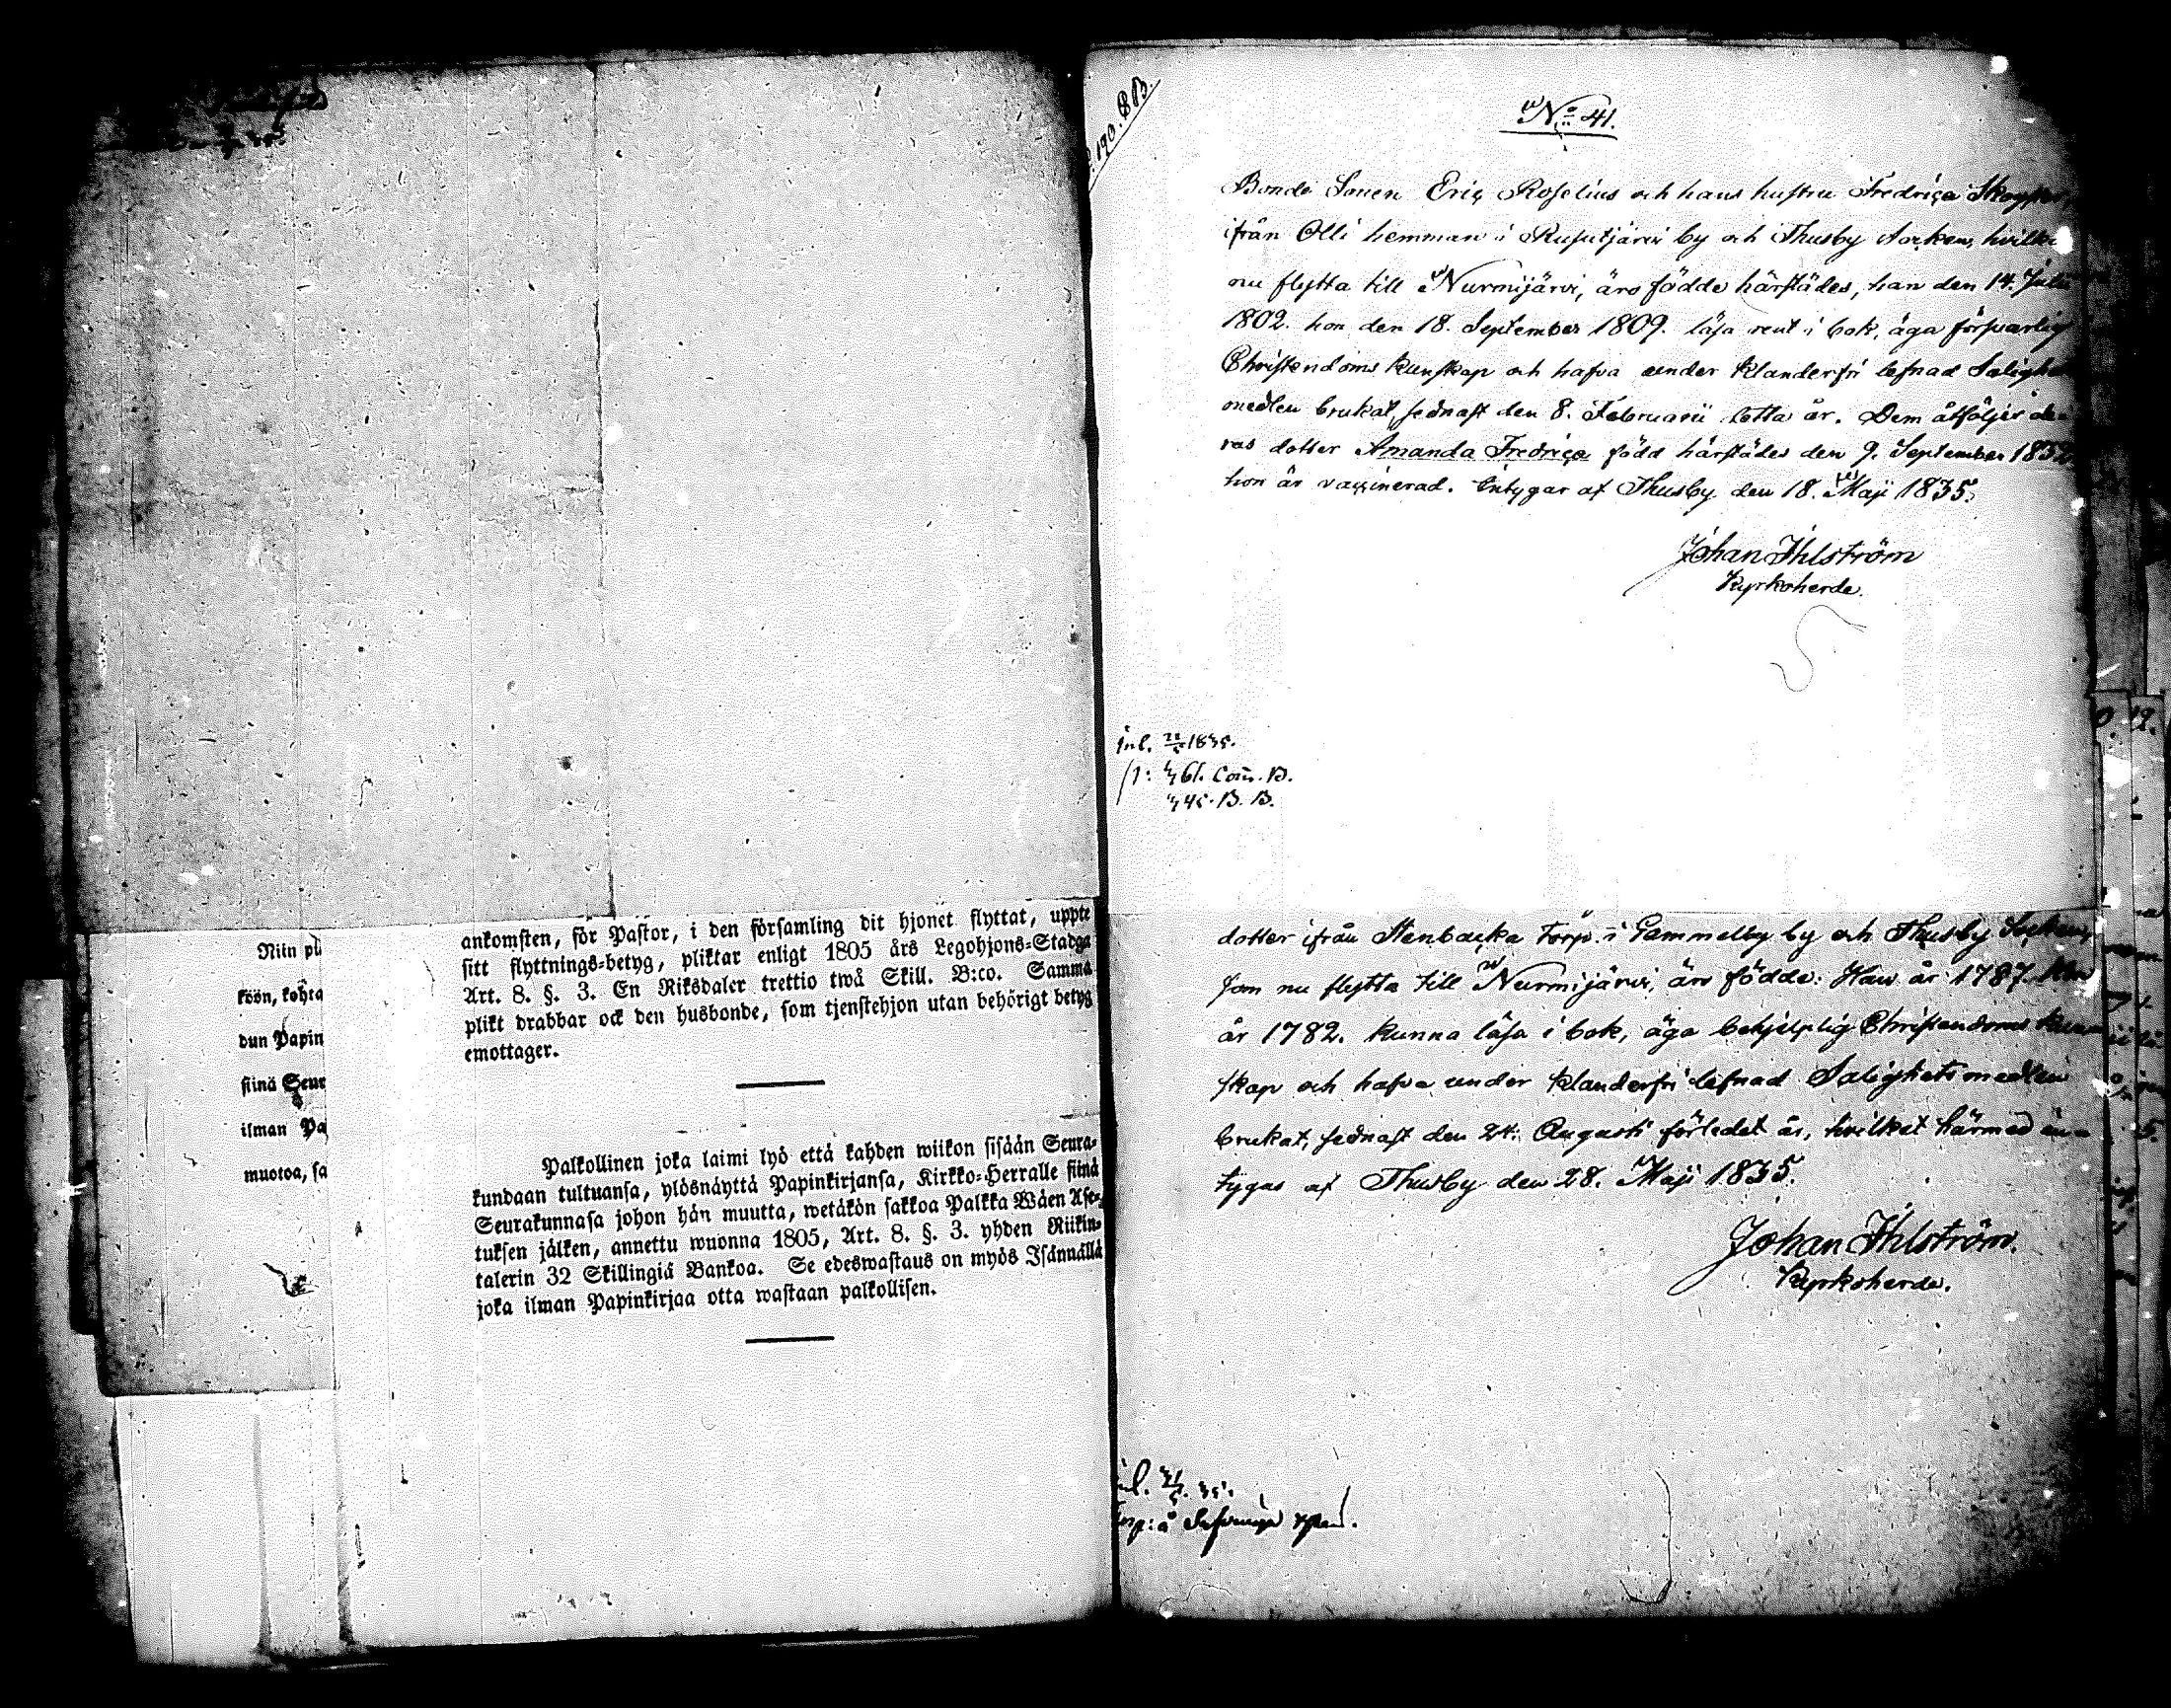 Niin pi
köön, kohta
dun Papin
siinä Seur
ilman Pa
muotoa, sa
ankomsten, för Pastor, i den församling dit hjonet flyttat, uppte
sitt flyttnings-betyg, pliktar enligt 1805 års Legohjons-Stadga
Art. 8. §. 3. En Riksdaler trettio twå Skill. B:co. Samma
plikt drabbar ock den husbonde, som tjenstehjon utan behörigt betyg
emottager.
Palkollinen joka laimi lyö että kahden wiikon sisään Seura-
kundaan tultuansa, ylösnäyttä Papinkirjansa, Kirkko-Herralle siinä
Seurakunnasa johon hän muutta, wetäkön sakkoa Palkka Wäen Ase-
tuksen jälken, annettu wuonna 1805, Art. 8. §. 3. yhden Riikin-
talerin 32 Skillingiä Bankoa. Se edeswastaus on myös Isännällä
joka ilman Papinkirjaa otta wastaan palkollisen.
190. BB.
No 41.
Bonde Sonen Eric Roselius och hans hustru Fredrica
ifrån Olli hemman i Rusutjärvi by och Thusby Socken, hvilka
nu flytta till Nurmijärvi, äro födde härstädes, han den 14. Julii
1802. hon den 18. September 1809. läsa rent i bok, äga försvarlig
Christendoms kunskap och hafva under klanderfri lefnad Salighets
medlen brukat, sednast den 8. Februarii detta år. Dem åtföljer de-
ras dotter Amanda Fredrica född härstädes den 9. September
hon är vaccinerad. Intygar af Thusby den 18. Maji 1835.
Johan Ihlström
Kyrkoherde.
inl. 1835.
61. Com. B.
45. B. B.
dotter ifrån Stenbacka torp i Gammelby by och Thusby Socken,
som nu flytta till Nurmijärvi, äro födde: Han år 1787. Hon
år 1782. kunna läsa i bok, äga behjelplig Christendoms kun-
skap och hafva under klanderfri lefnad Salighetsmedlen
brukat, sednast den 24. Augusti förledet år, hvilket härmed in-
tygas af Thusby den 28. Maji 1835.
Johan Ihlström.
Kyrkoherde.